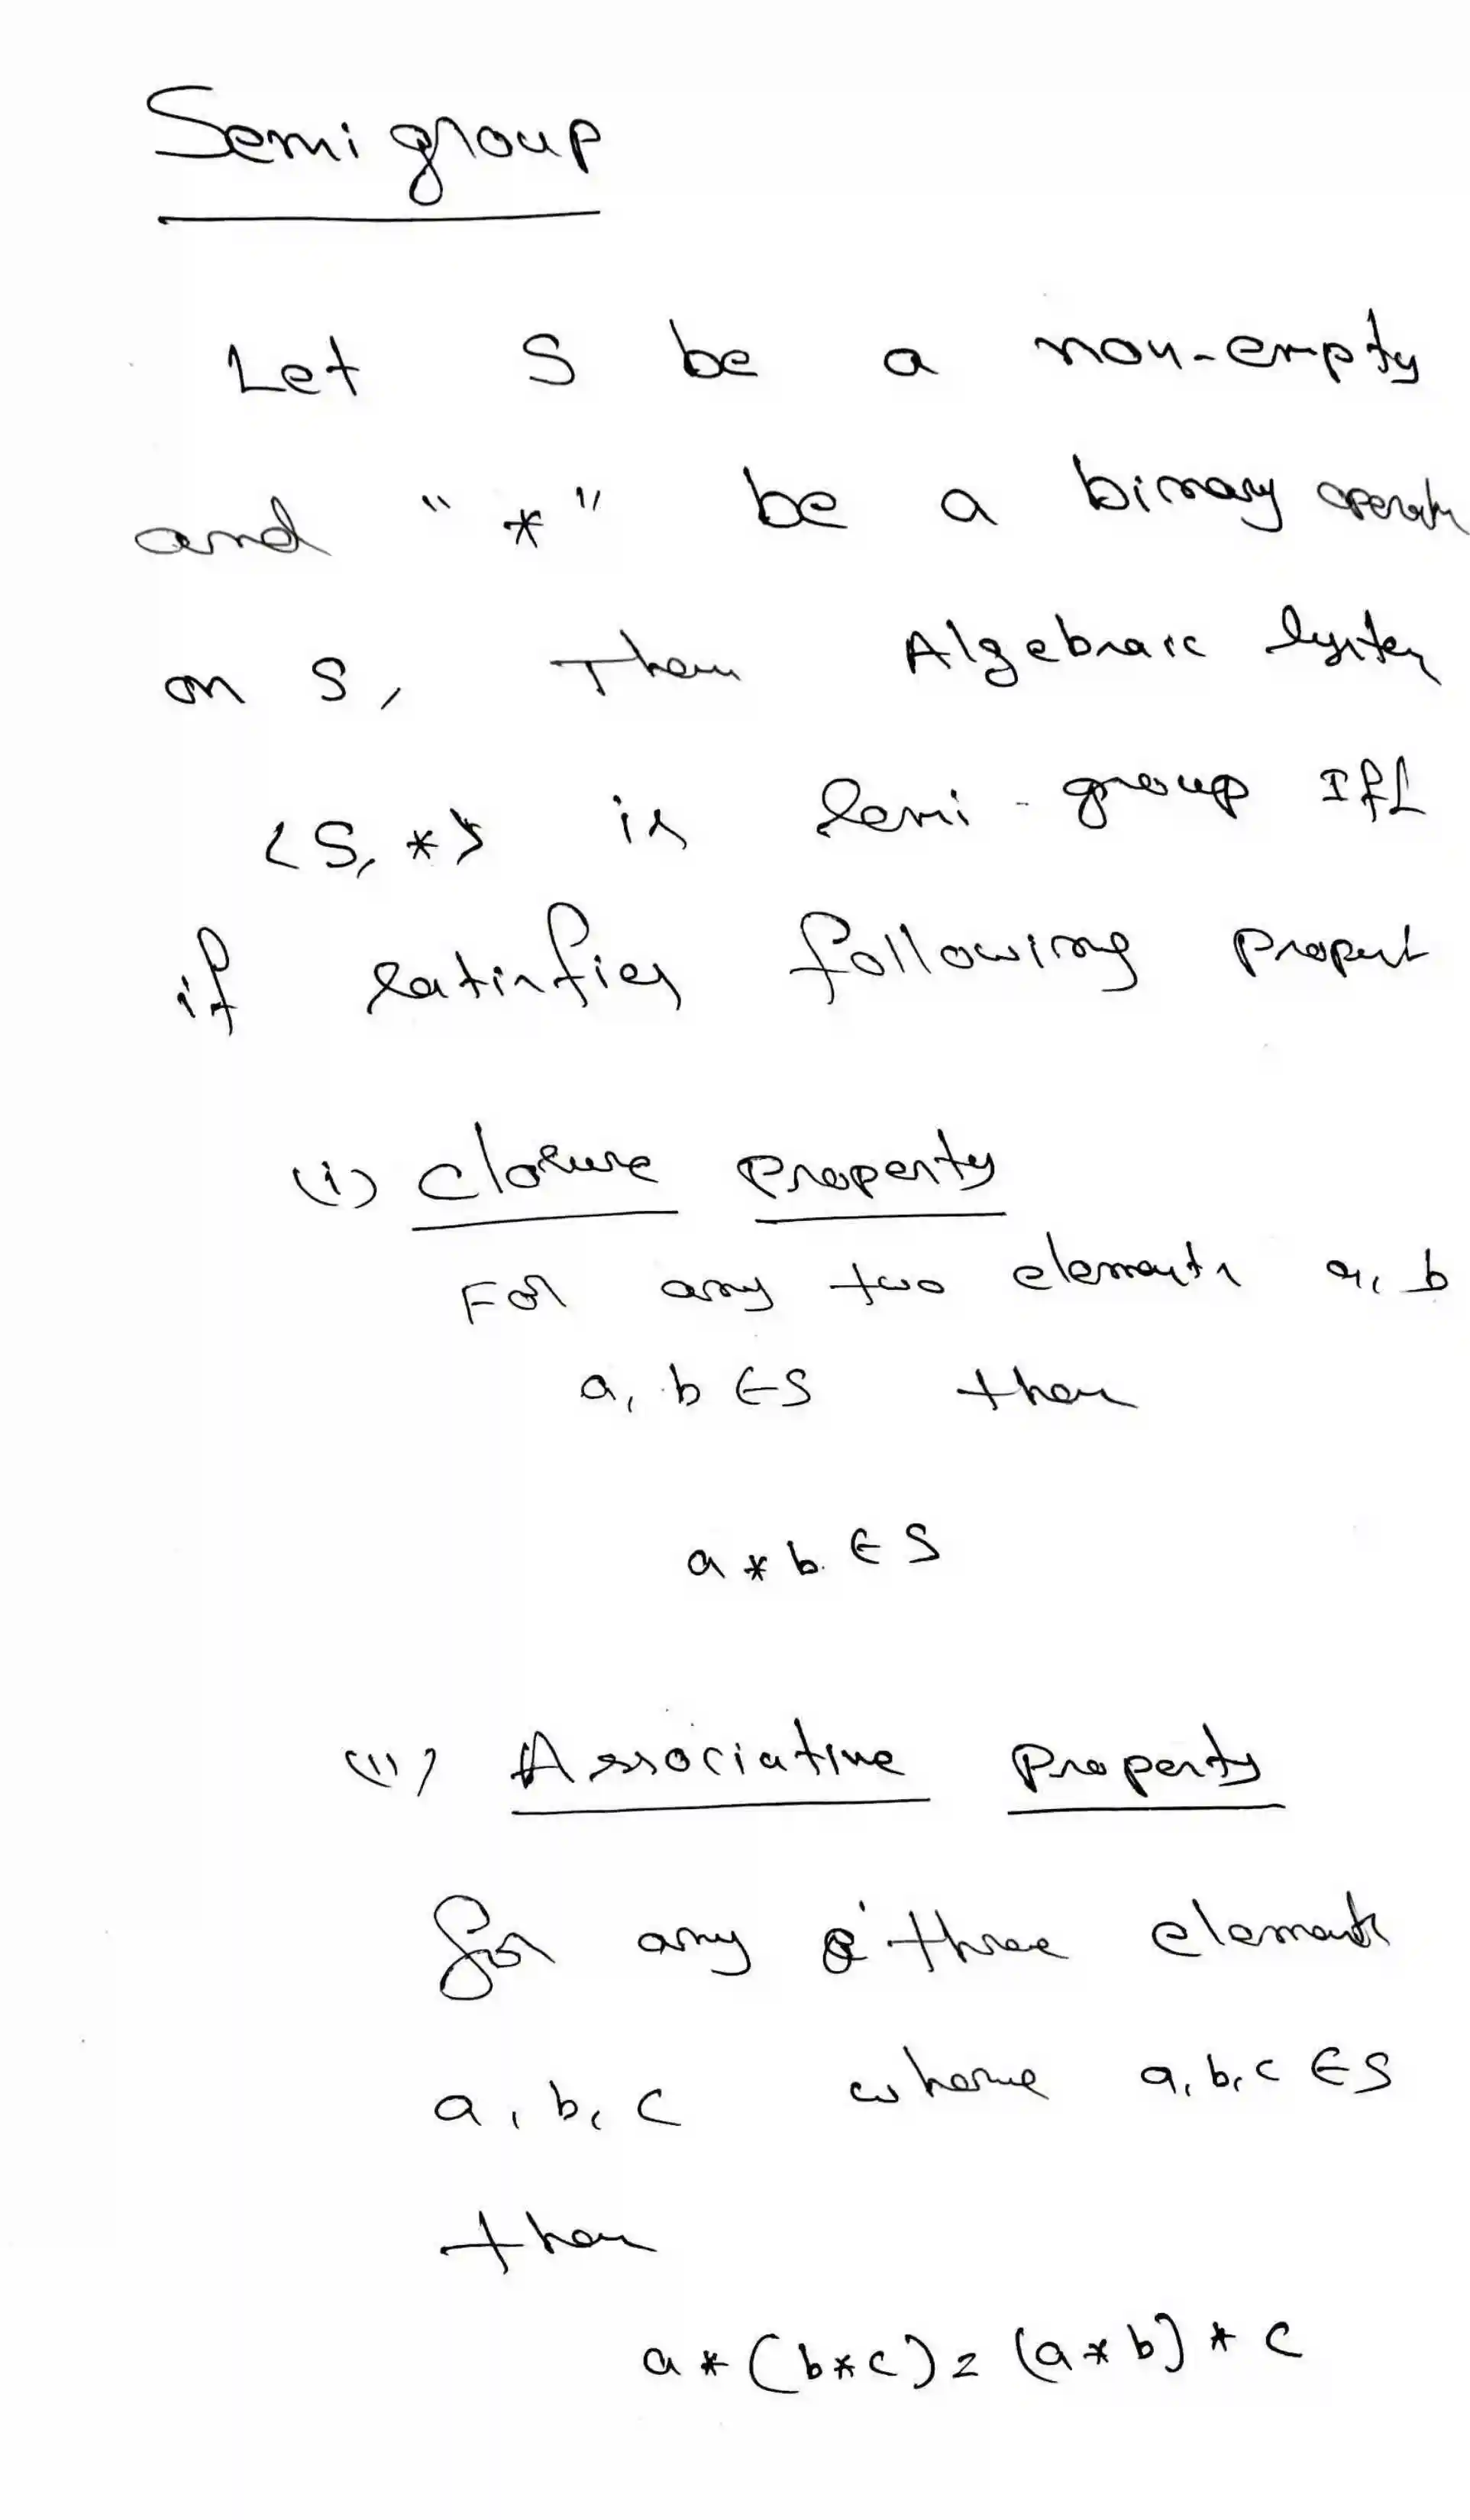 Semi group
Let S be a non-empty
and " * " be a binary operatn
on S, Then Algebraic System
<S, *> is Semi-group Iff
if satisfies following Propert
(i) Closure Property
For any two elements a, b
a, b ∈ S then
a * b ∈ S
(ii) Associative Property
for any three element
a, b, c where a, b, c ∈ S
then
a * (b * c) = (a * b) * c